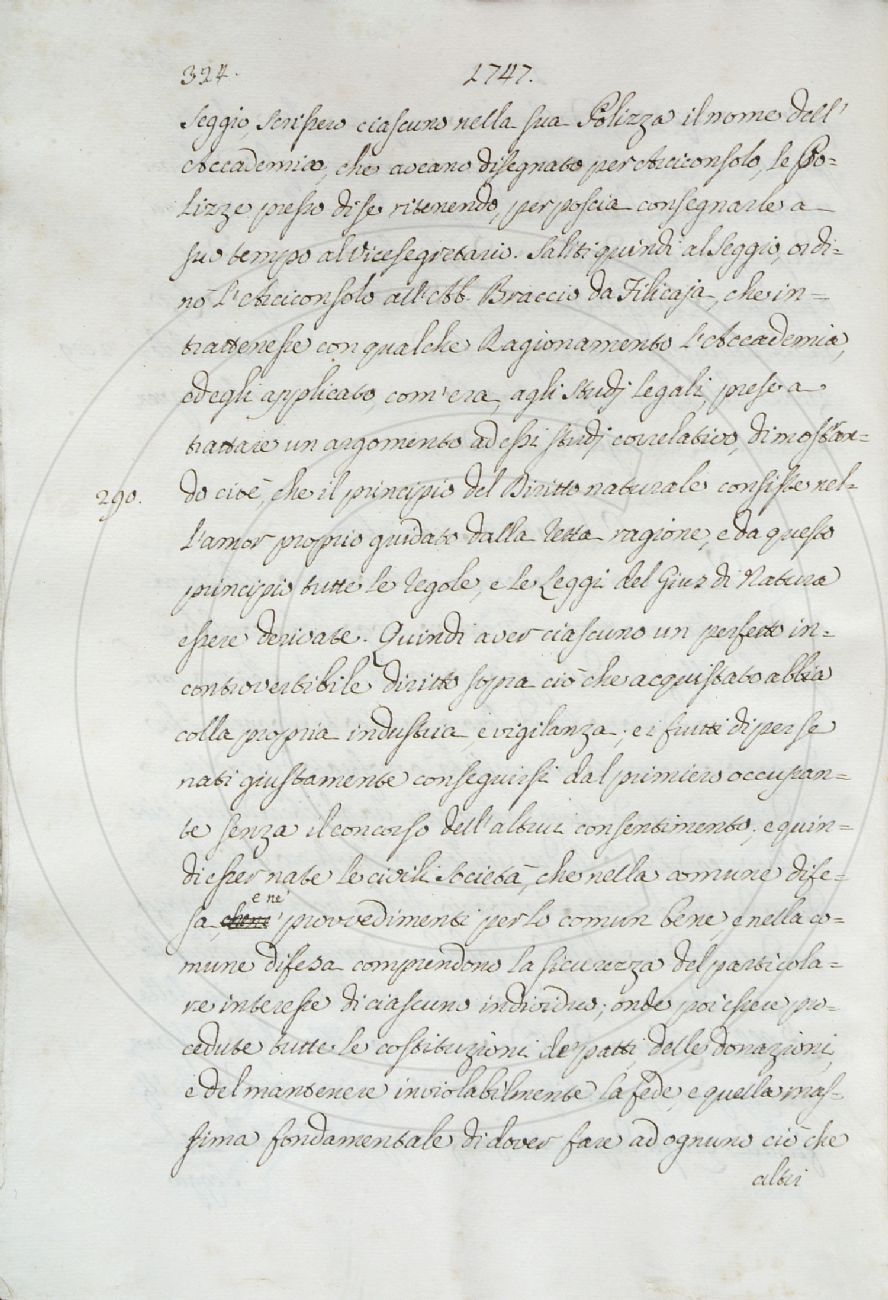 324.
1747.
Seggio, scrissero ciascuno nella sua Polizza il nome dell'
Accademico, che aveano disegnato per Arciconsolo, le Po=
lizze presso di se ritenendo, per poscia consegnarle a
suo tempo al Vicesegretario. Saliti quindi al Seggio, ordi=
nò l'Arciconsolo all'Ab. Braccio da Filicaja, che in=
trattenesse con qualche Ragionamento l'Accademia,
ed egli applicato, com'era, agli Studj legali, prese a
trattare un argomento ad essi studj correlativo, dimostran=
290.
do cioè, che il principio del Diritto naturale consiste nel=
l'amor proprio guidato dalla retta ragione, e da questo
principio tutte le regole, e le Leggi del Gius di Natura
essere derivate. Quindi aver ciascuno un perfetto in=
controvertibile diritto sopra ciò che acquistato abbia
colla propria industria e vigilanza; e i frutti di per se
nati giustamente conseguirsi dal primiero occupan=
te senza il concorso dell'altrui consentimento; e quin=
di esser nate le civili Società, che nella comune dife=
e ne'
sa, provvedimenti per lo comun bene, e nella co=
mune difesa comprendono la sicurezza del particola=
re interesse di ciascuno individuo; onde poi essere pro=
cedute tutte le costituzioni de' patti delle donazioni,
e del mantenere inviolabilmente la fede, e quella mas=
sima fondamentale di dover fare ad ognuno ciò che
altri